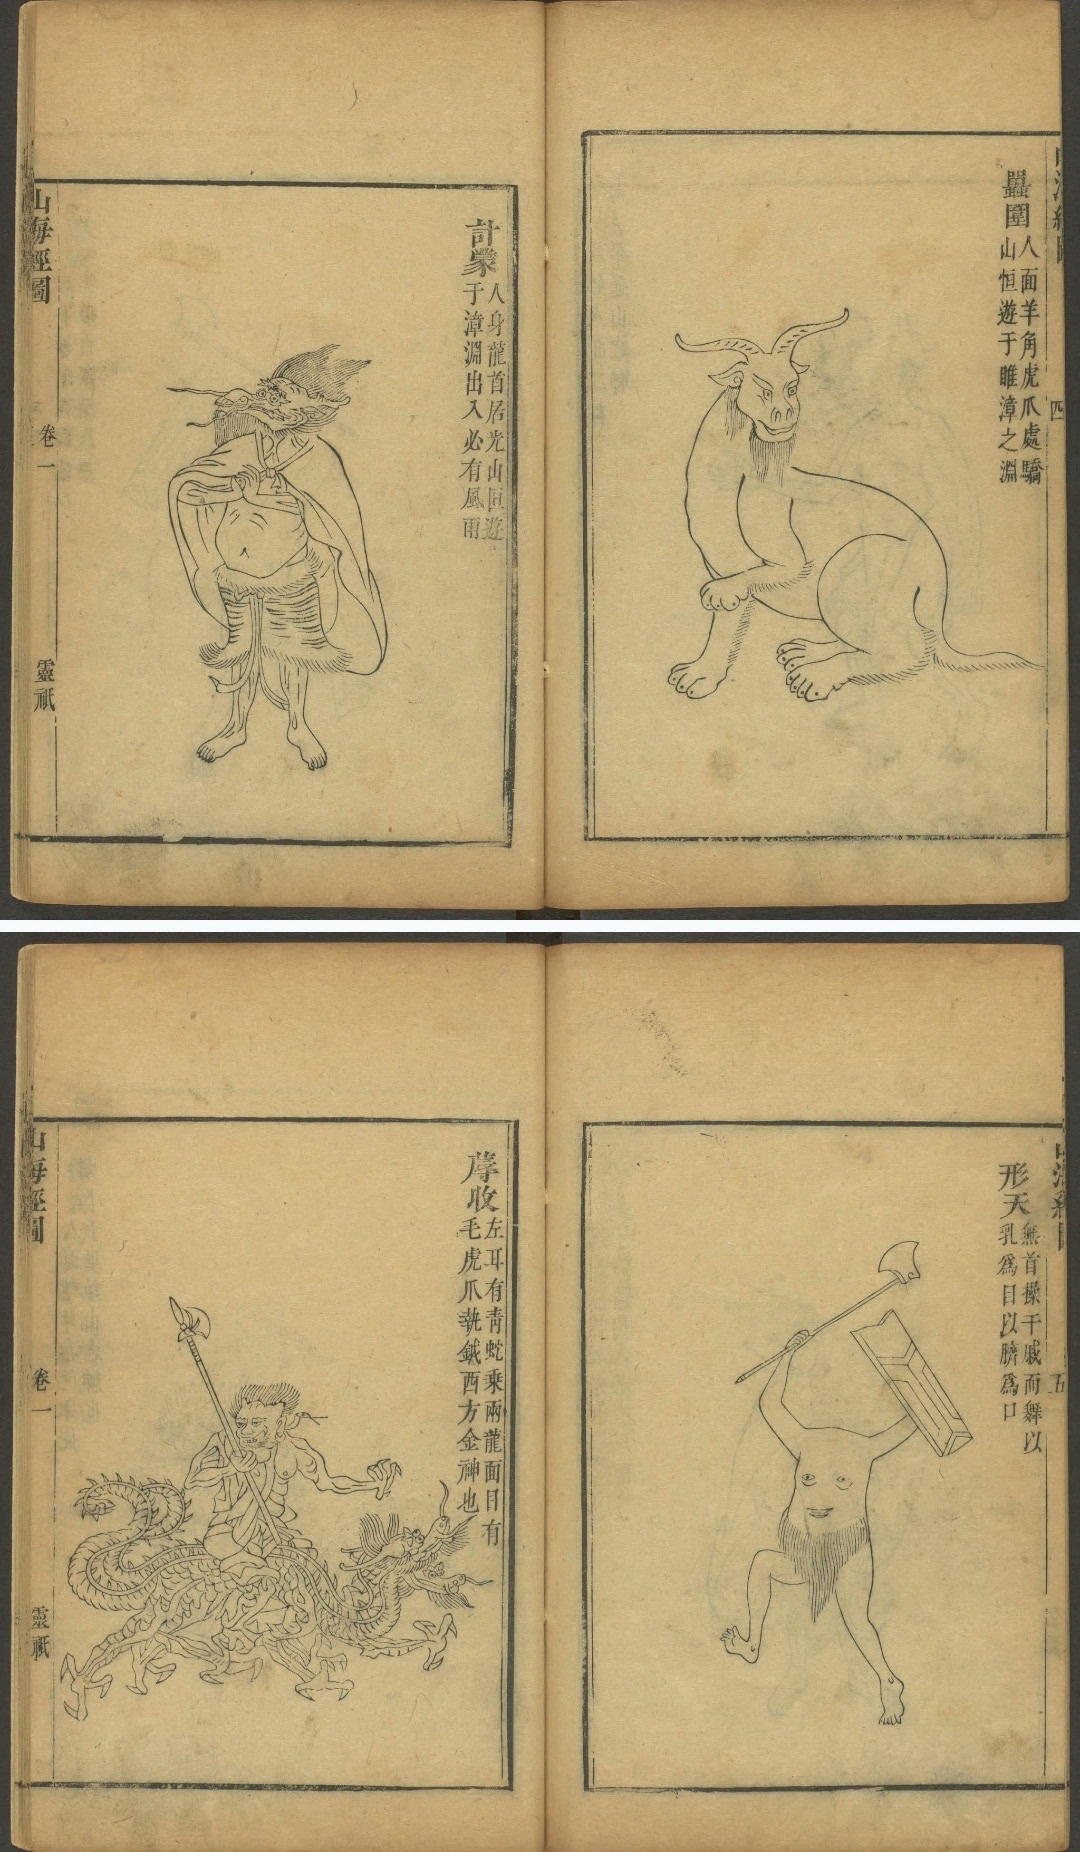 蟲圍
人面羊角虎爪處驕
山恒遊于睢漳之淵
四
計蒙
人身龍首居光山恒遊
于漳淵出入必有風雨
山海經圖
卷一
靈祇
形天
無首操干戚而舞以
乳為目以臍為口
五
蓐收
左耳有青蛇乘兩龍面目有
毛虎爪執鉞西方金神也
山海經圖
卷一
靈祇